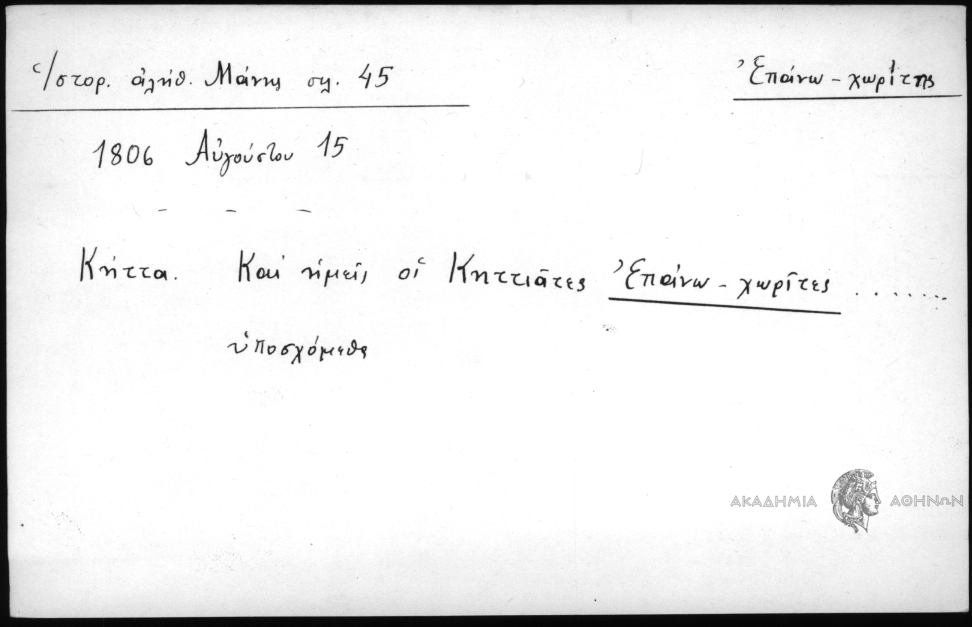 Ἱστορ. ἀλήθ. Μάνης σελ. 45
Ἐπάνω - χωρίτης
1806 Αὐγούστου 15
Κήττα. Καί ἡμεῖς οἱ Κηττιᾶτες Ἐπάνω - χωρῖτες .......
ὑποσχόμεθα
ΑΚΑΔΗΜΙΑ ΑΘΗΝΩΝ